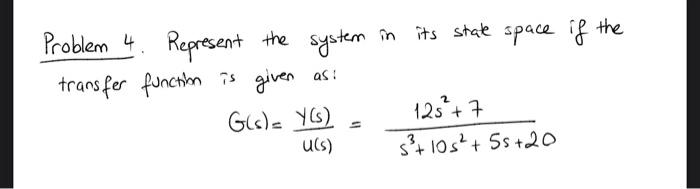 Problem 4. Represent the system in its state space if the
transfer function is given as:
G(s) = Y(s)/U(s) = 12s² + 7 / s³ + 10s² + 5s + 20